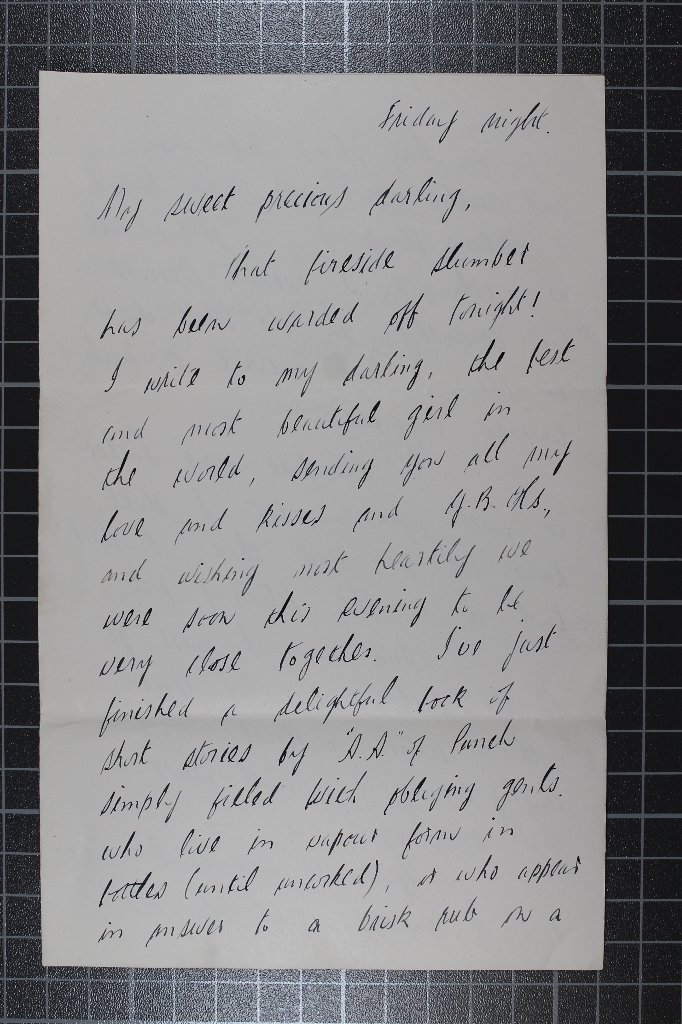 Friday night.
My sweet precious darling,
That fireside slumber
has been warded off tonight!
I write to my darling, the best
and most beautiful girl in
the world, sending you all my
love and kisses and G.B. Hs.,
and wishing most heartily we
were soon this evening to be
very close together. I've just
finished a delightful book of
short stories by "A.A." of Punch
simply filled with obliging gents.
who live in vapour form in
bottles (until uncorked), or who appear
in answer to a brisk rub on a